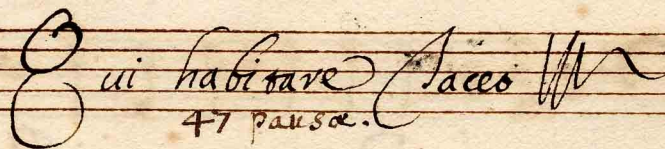 Qui habitare Taceo
47 pausæ.